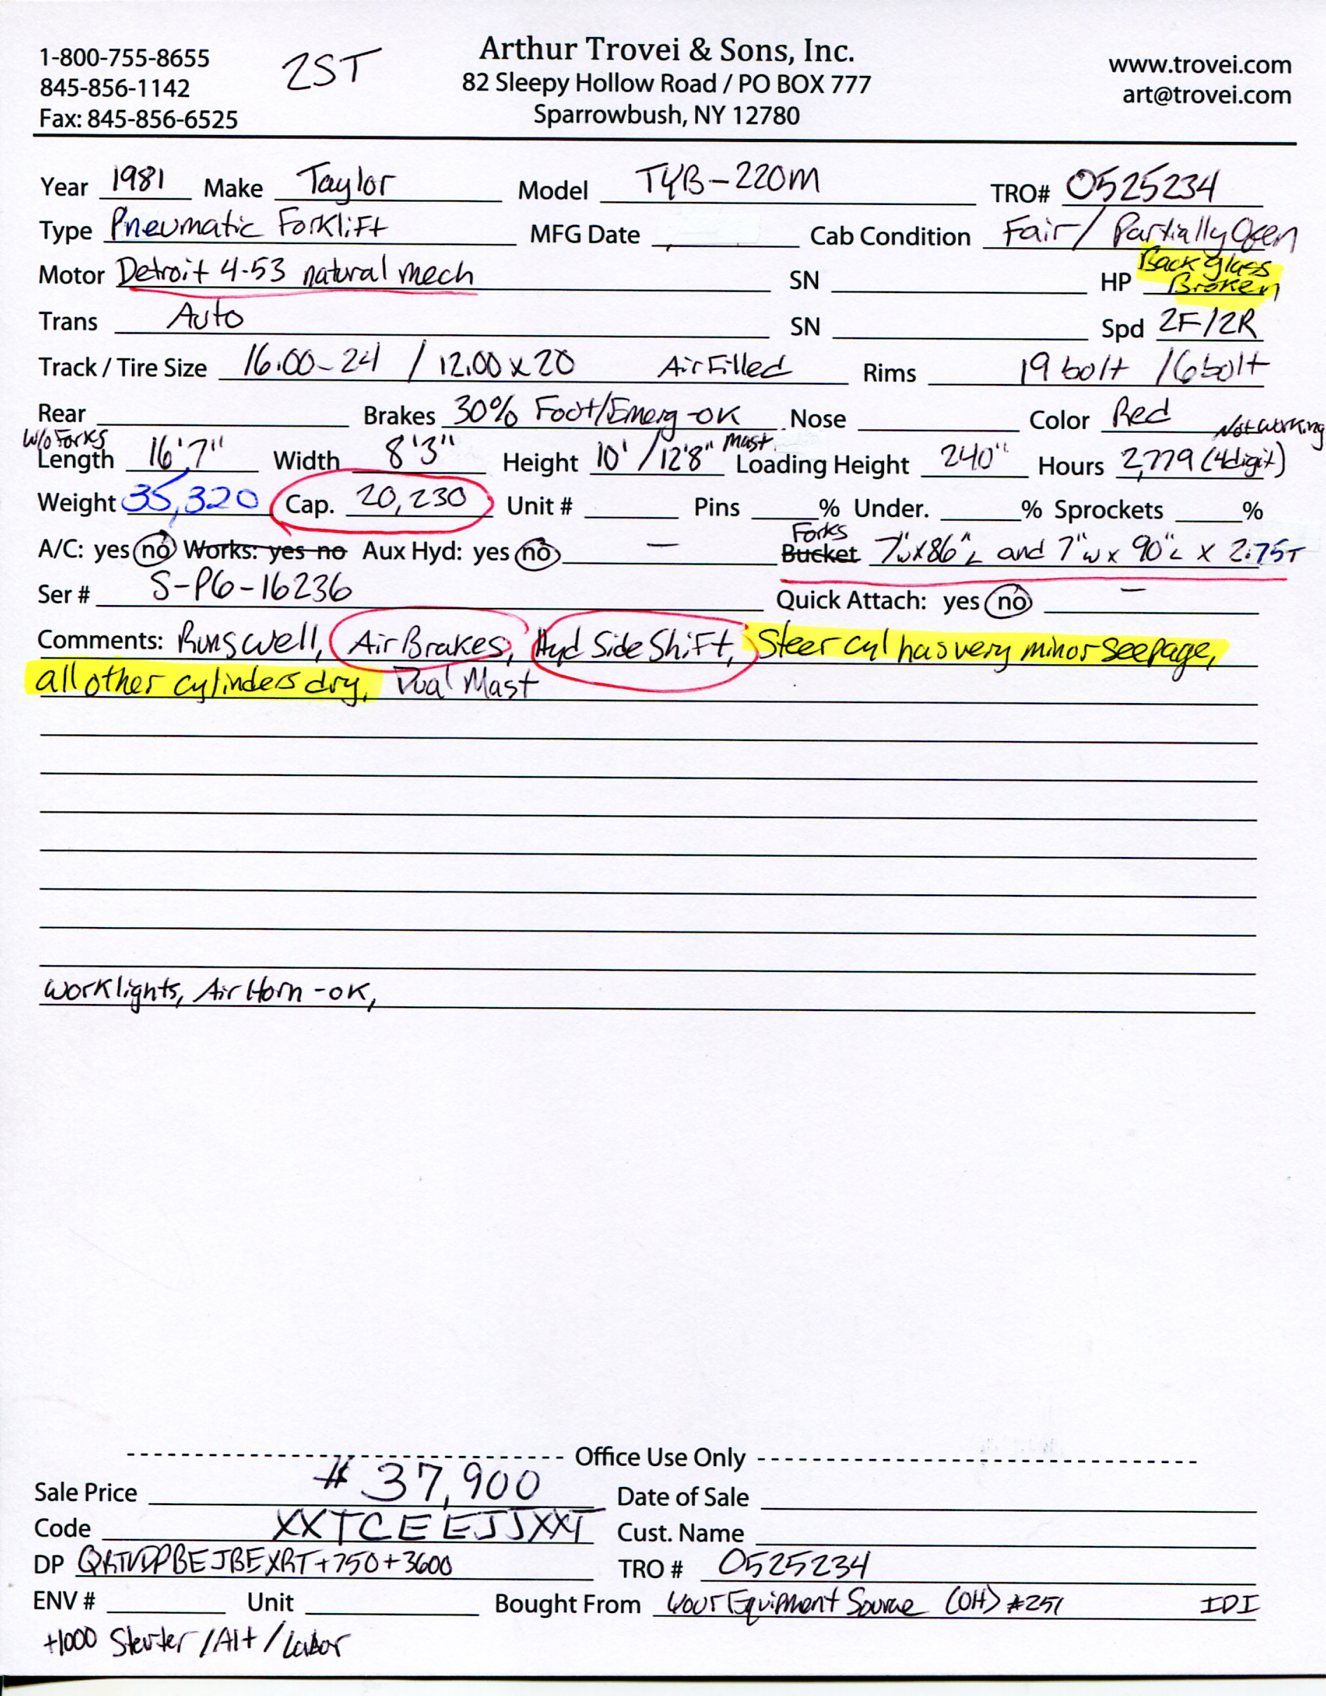 1-800-755-8655
845-856-1142
Fax: 845-856-6525
2ST
Arthur Trovei & Sons, Inc.
82 Sleepy Hollow Road / PO BOX 777
Sparrowbush, NY 12780
www.trovei.com
art@trovei.com
Year 1981 Make Taylor Model TYB-220M TRO# 0525234
Type Pneumatic Forklift MFG Date Cab Condition Fair / Partially Open
Back glass Broken
Motor Detroit 4-53 natural mech SN HP
Trans Auto SN Spd 2F/2R
Track / Tire Size 16.00-24 / 12.00x20 Air Filled Rims 19 bolt / 6 bolt
Rear Brakes 30% Foot/Emerg-OK Nose Color Red
W/o Forks Length 16'7" Width 8'3" Height 10' / 12'8" Mast Loading Height 240" Hours 2,779 (4digit) Not working
Weight 35,320 Cap. 20,230 Unit # Pins % Under. % Sprockets %
A/C: yes no Works: yes no Aux Hyd: yes no — Forks Bucket 7"W x 86"L and 7"W x 90"L x 2.75T
Ser # S-P6-16236 Quick Attach: yes no —
Comments: Runs well, Air Brakes, Hyd Side Shift, Steer cyl has very minor seepage,
all other cylinders dry, Dual Mast
worklights, Air Horn -OK,
Office Use Only
Sale Price # 37,900 Date of Sale
Code XXTCEEJJXXT Cust. Name
DP QRTVDPBEJBEXRT+750+3600 TRO # 0525234
ENV # Unit Bought From Your Equipment Source (OH) #251 IDI
+1000 Starter / Alt / Labor